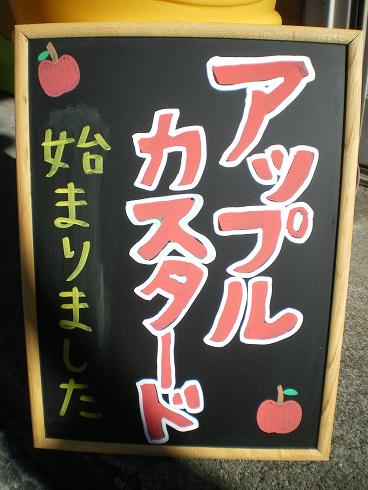 アップル
カスタード
始まりました